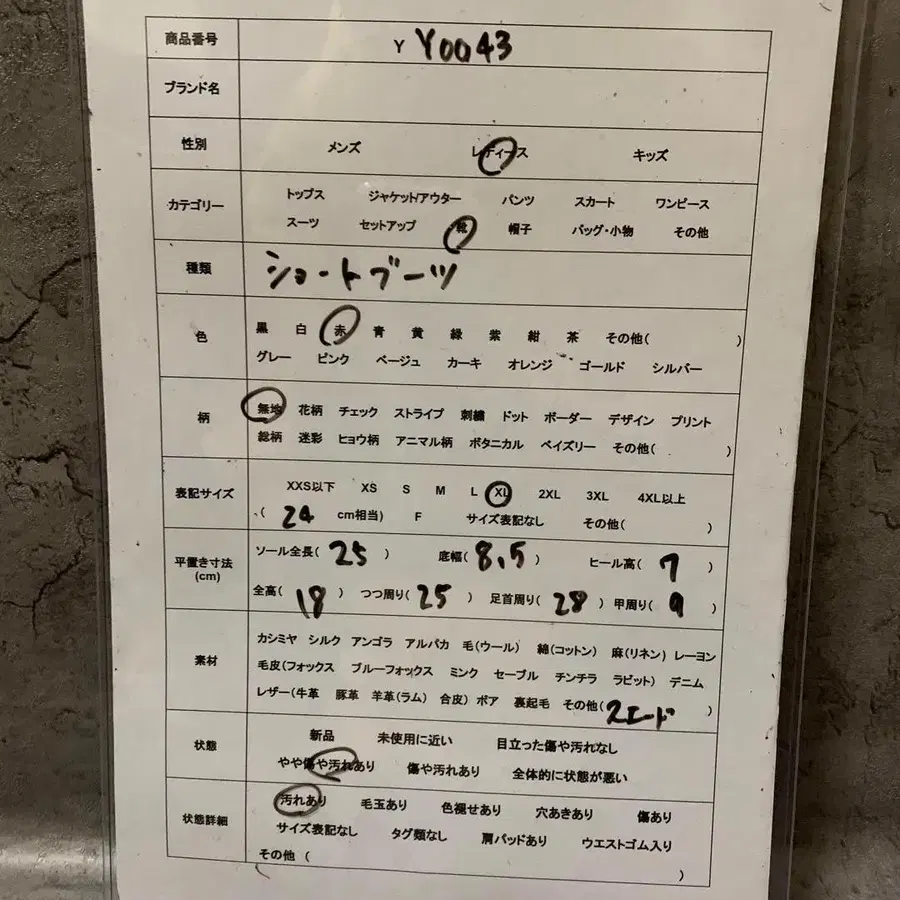 商品番号 Y Y0043
ブランド名
性別 メンズ レディース キッズ
トップス ジャケット/アウター パンツ スカート ワンピース
カテゴリー
スーツ セットアップ 靴 帽子 バッグ・小物 その他
種類 ショートブーツ
黒 白 赤 青 黄 緑 紫 紺 茶 その他( )
色
グレー ピンク ベージュ カーキ オレンジ ゴールド シルバー
無地 花柄 チェック ストライプ 刺繍 ドット ボーダー デザイン プリント
柄
総柄 迷彩 ヒョウ柄 アニマル柄 ボタニカル ペイズリー その他( )
XXS以下 XS S M L XL 2XL 3XL 4XL以上
表記サイズ
( 24 cm相当) F サイズ表記なし その他( )
ソール全長( 25 ) 底幅( 8.5 ) ヒール高( 7 )
平置き寸法
(cm)
全高( 18 ) つつ周り( 25 ) 足首周り( 28 ) 甲周り( 9 )
カシミヤ シルク アンゴラ アルパカ 毛(ウール) 綿(コットン) 麻(リネン) レーヨン
素材
毛皮(フォックス ブルーフォックス ミンク セーブル チンチラ ラビット) デニム
レザー(牛革 豚革 羊革(ラム) 合皮) ボア 裏起毛 その他( スエード )
新品 未使用に近い 目立った傷や汚れなし
状態
やや傷や汚れあり 傷や汚れあり 全体的に状態が悪い
汚れあり 毛玉あり 色褪せあり 穴あきあり 傷あり
状態詳細
サイズ表記なし タグ類なし 肩パッドあり ウエストゴム入り
その他 ( )